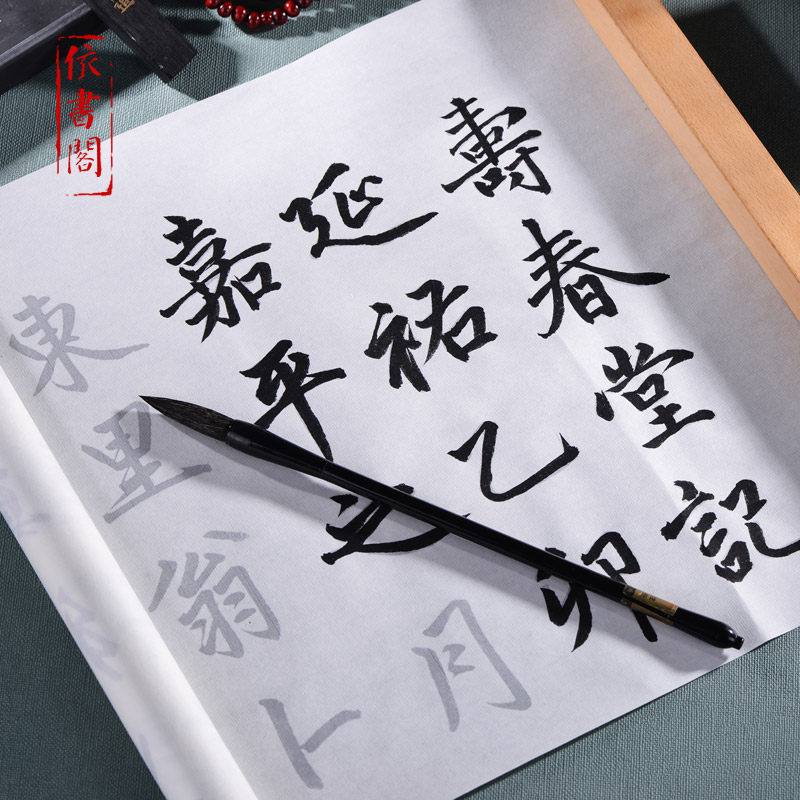 壽春堂記
延祐乙卯
嘉平之月
東里翁卜
依書閣